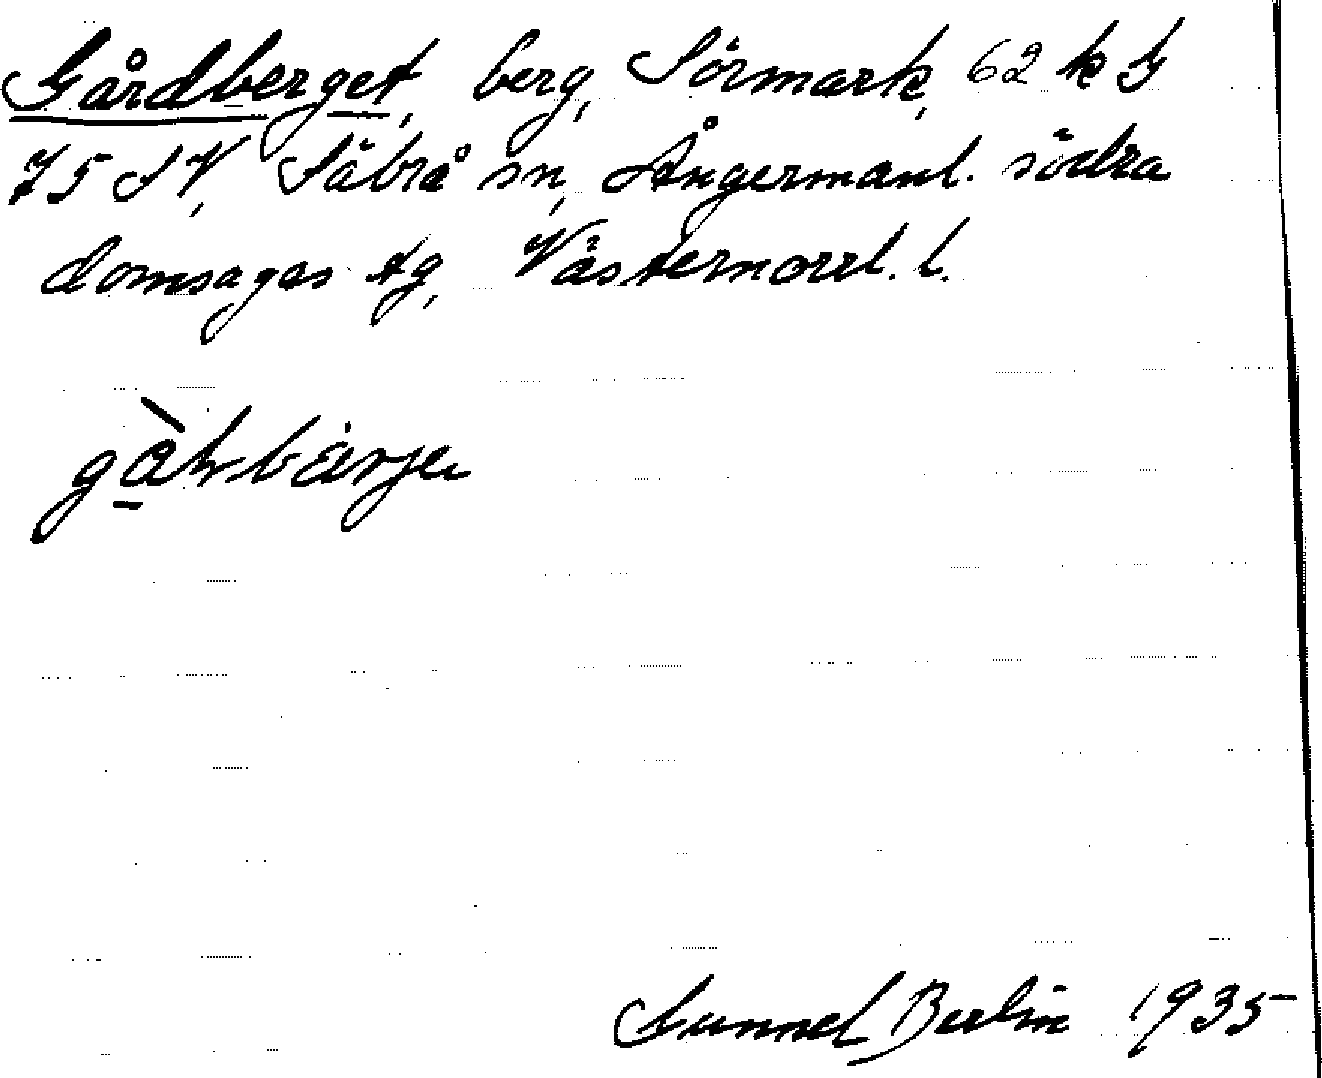 Gårdberget, berg, Sörmark, 62 k G
75 S V, Säbrå sn, Ångermanl. södra
domsagas tg, Västernorrl. l.
Gunnel Berlin 1935